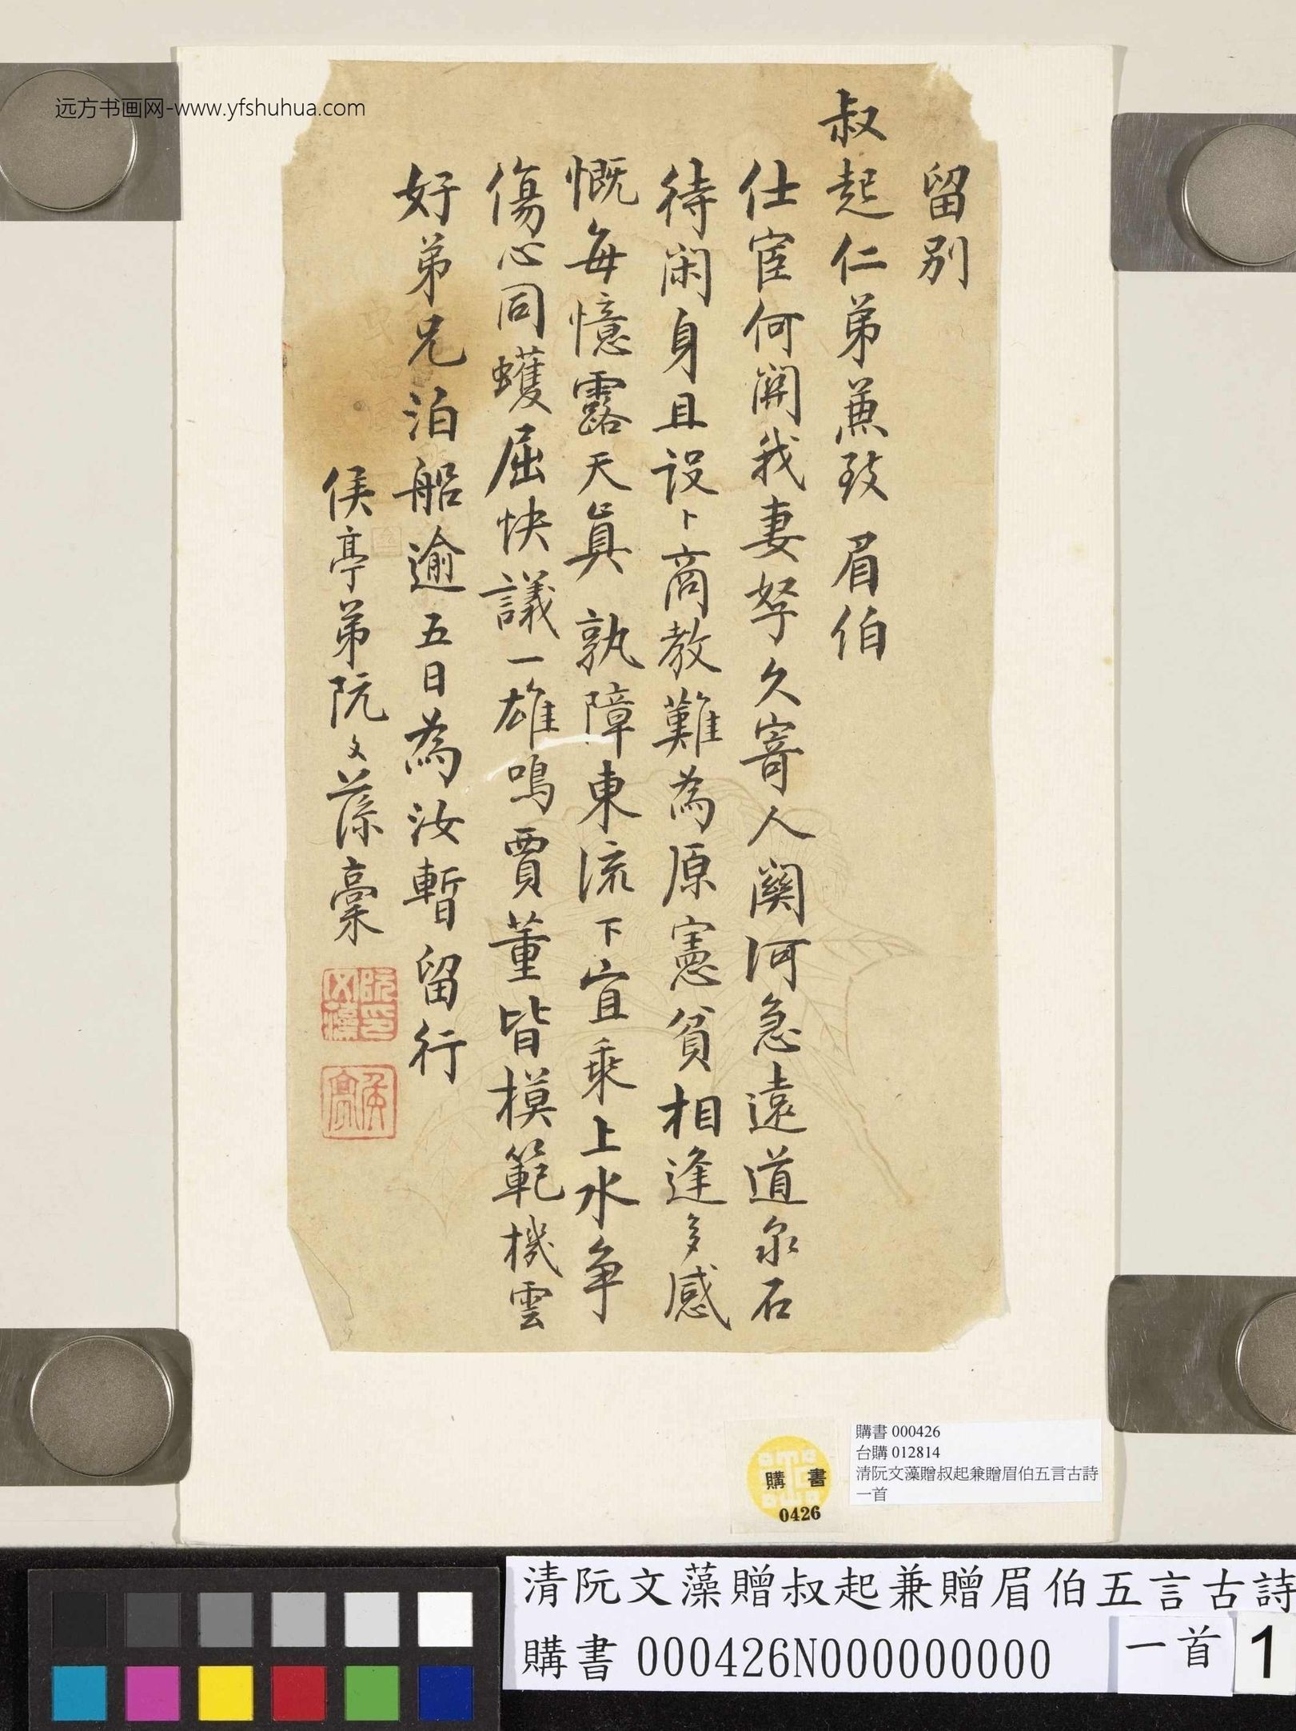 远方书画网-www.yfshuhua.com
留别
叔起仁弟兼致眉伯
仕宦何關我妻孥久寄人關河急遠道泉石
待閑身且設卜商教難為原憲貧相逢多感
慨每憶露天真孰障東流下宜乘上水争
傷心同蠖屈快議一雄鳴賈董皆模範機雲
好弟兄泊船逾五日為汝暫留行
侯亭弟阮文藻稾
購書
0426
購書 000426
台購 012814
清阮文藻贈叔起兼贈眉伯五言古詩
一首
清阮文藻贈叔起兼贈眉伯五言古詩
購書 000426N000000000
一首
1